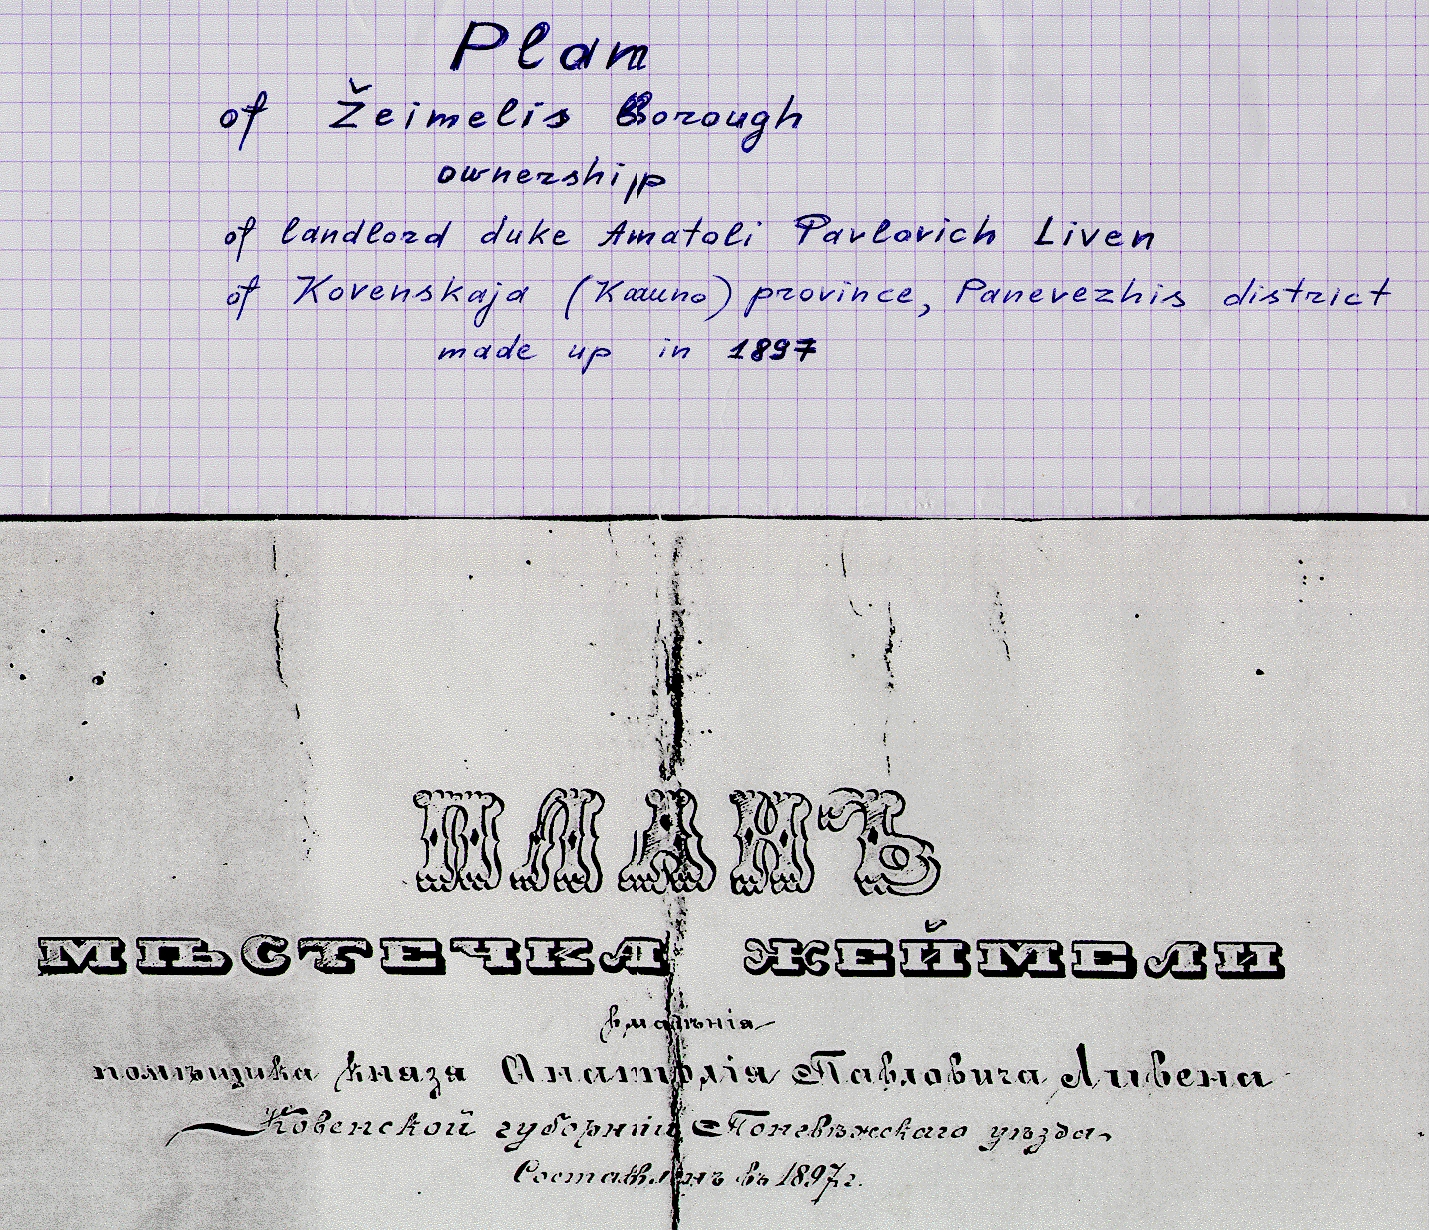 Plan
of Žeimelis Borough
ownership
of landlord duke Anatoli Pavlovich Liven
of Kovenskaja (Kauno) province, Panevezhis district
made up in 1897
ПЛАНЪ
МѢСТЕЧКА ЖЕЙМЕЛИ
владѣнія
помѣщика князя Анатолія Павловича Ливена
Ковенской губерніи Поневѣжскаго уѣзда.
Составленъ въ 1897 г.